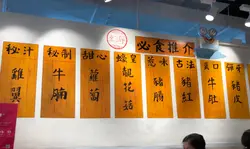 必食推介
秘汁
雞翼
秘制
牛腩
甜心
蘿蔔
蠔皇
靚花菇
惹味
豬腩
古法
豬紅
爽口
牛肚
彈牙
豬皮